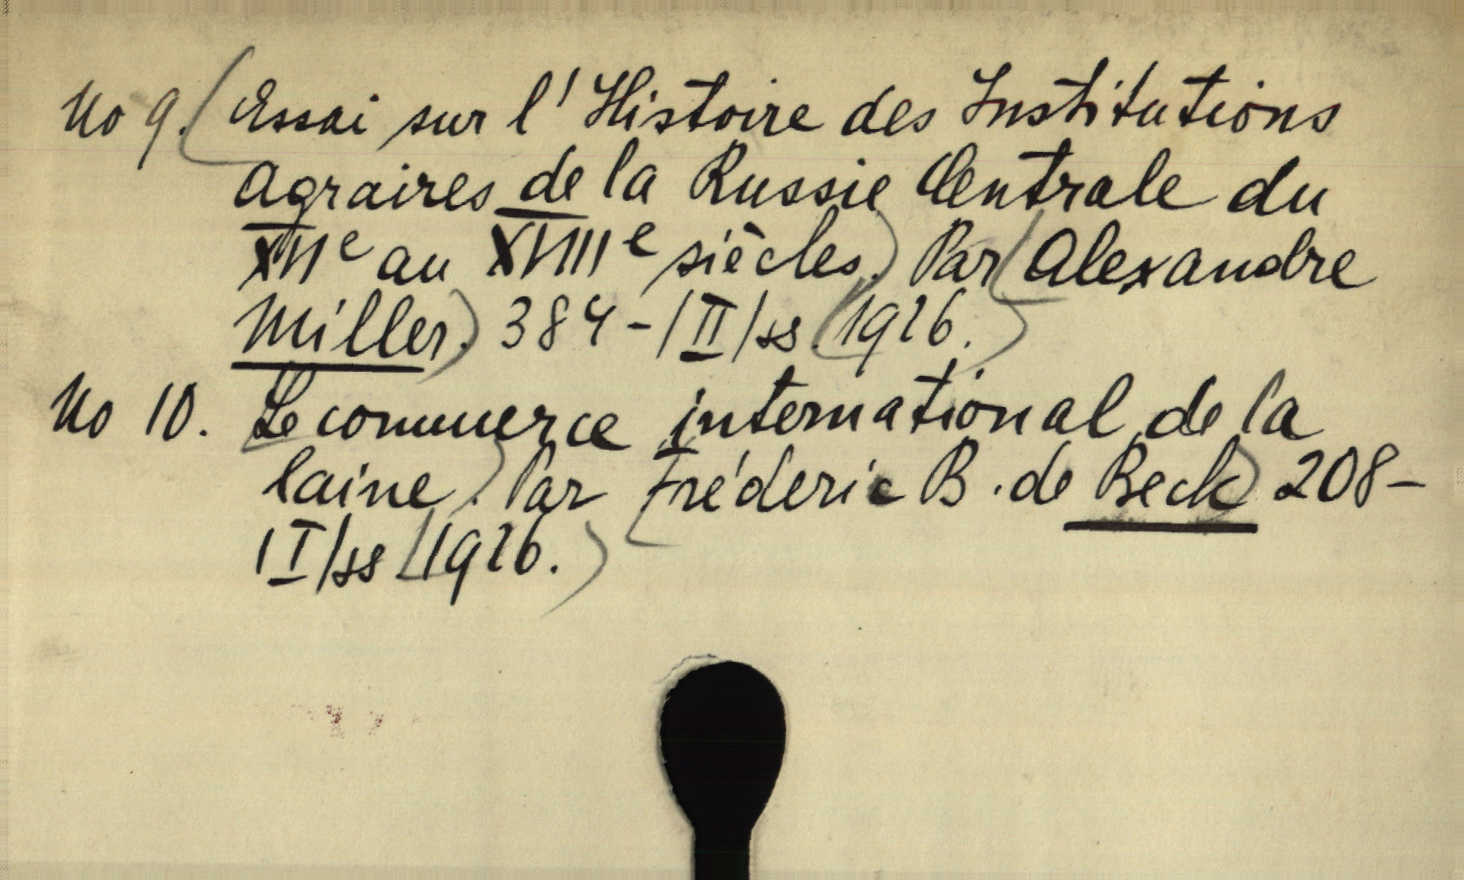 No 9. (Essai sur l'Histoire des Institutions
Agraires de la Russie Centrale du
XVIe au XVIIIe siècles.) Par (Alexandre
Miller.) 384-/II/ss. (1926.)
No 10. Le commerce international de la
laine). Par (Fréderic B. de Beck) 208-
/I/ss (1926.)